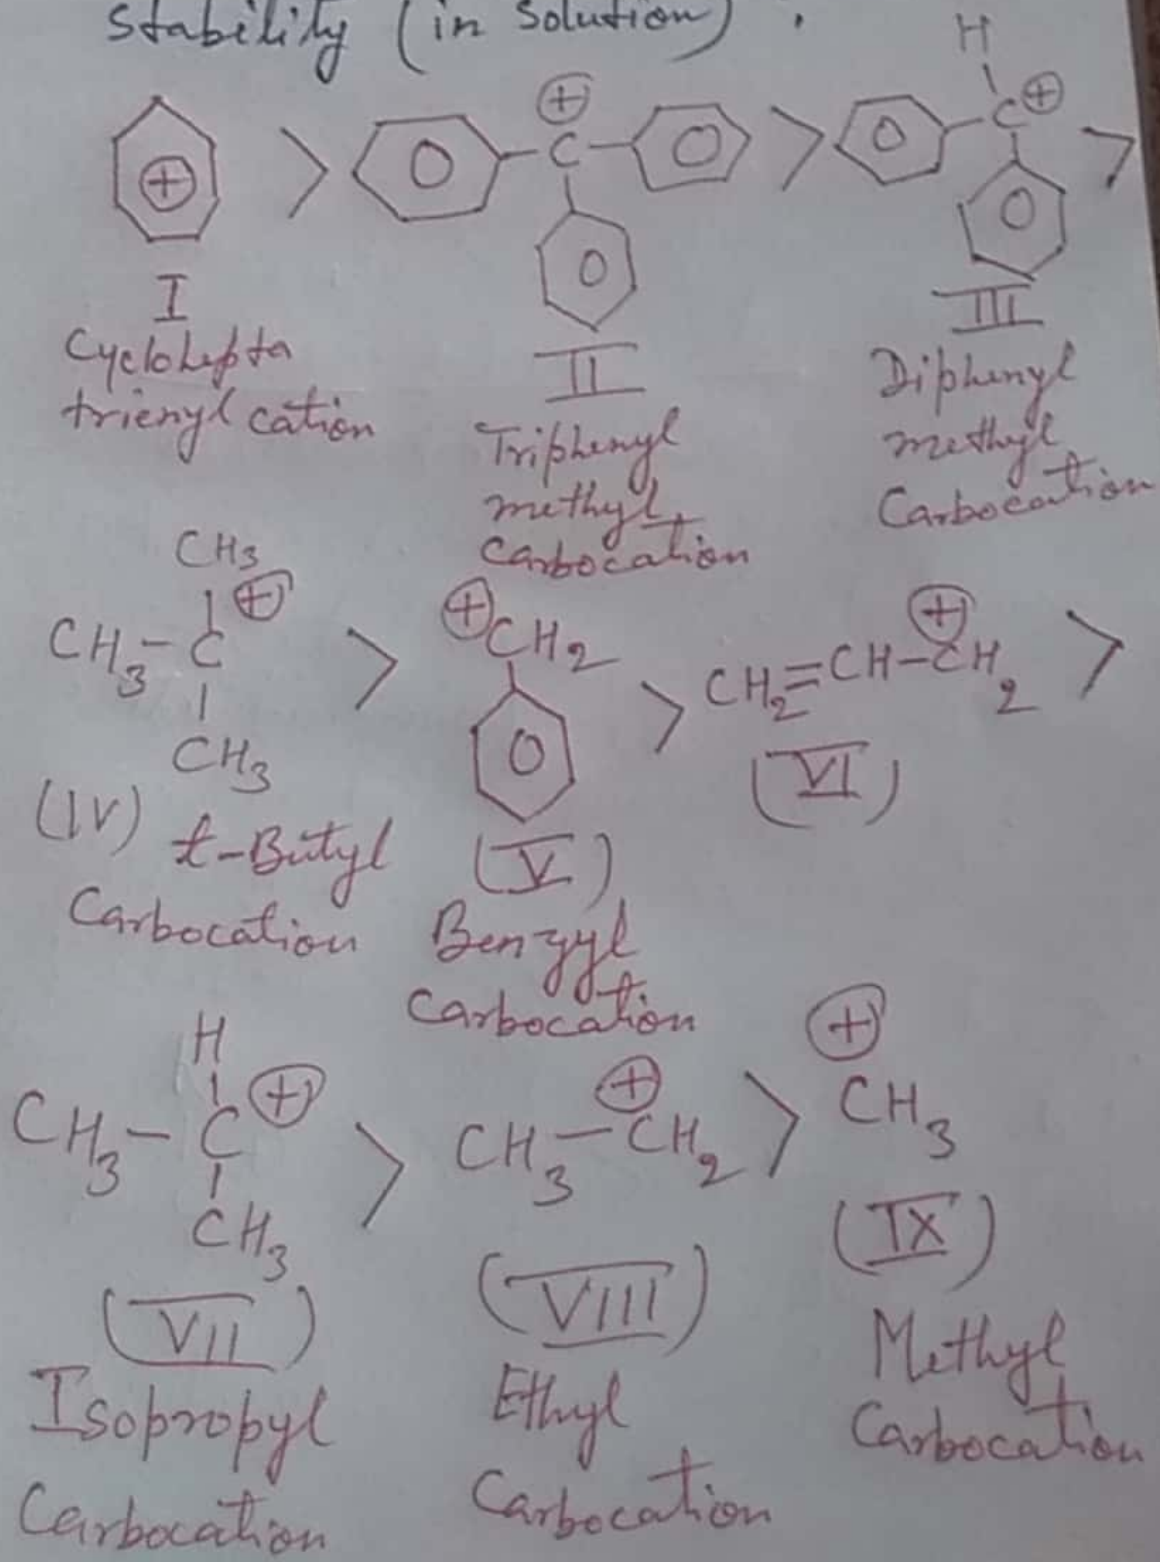 Stability (in Solution) :
⊕ > C ⊕ > H C ⊕ >
I
Cyclohepta
trienyl cation
II
Triphenyl
methyl
Carbocation
III
Diphenyl
methyl
Carbocation
CH3
CH3-C ⊕ > ⊕CH2 > CH2=CH-CH2 ⊕ >
CH3
(IV) t-Butyl
Carbocation
(V)
Benzyl
Carbocation
(VI)
H
CH3-C ⊕ > CH3-CH2 ⊕ > ⊕ CH3
CH3
(VII)
Isopropyl
Carbocation
(VIII)
Ethyl
Carbocation
(IX)
Methyl
Carbocation